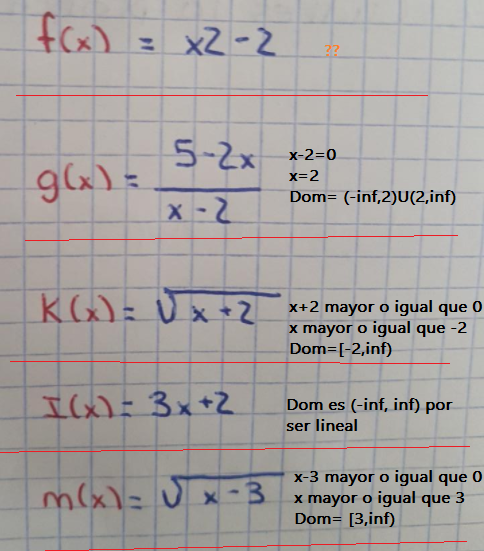 f(x) = x2-2 ??
g(x) = 5-2x / x-2
x-2=0
x=2
Dom= (-inf,2)U(2,inf)
K(x) = √x+2
x+2 mayor o igual que 0
x mayor o igual que -2
Dom=[-2,inf)
I(x) = 3x+2
Dom es (-inf, inf) por
ser lineal
m(x) = √x-3
x-3 mayor o igual que 0
x mayor o igual que 3
Dom= [3,inf)